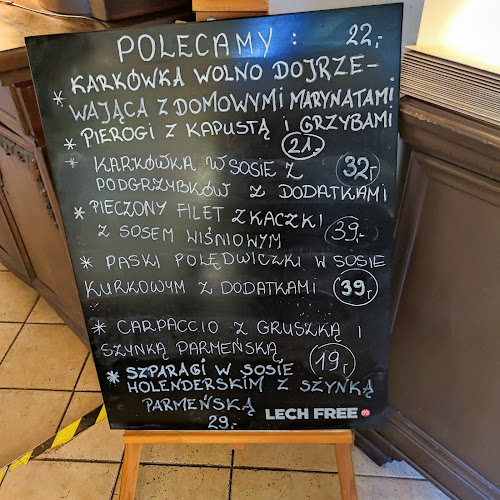 POLECAMY : 22,-
* KARKÓWKA WOLNO DOJRZE-
WAJĄCA Z DOMOWYMI MARYNATAMI
* PIEROGI Z KAPUSTĄ I GRZYBAMI
21.-
* KARKÓWKA W SOSIE Z 32,-
PODGRZYBKÓW Z DODATKAMI
* PIECZONY FILET Z KACZKI
Z SOSEM WIŚNIOWYM 39,-
* PASKI POLĘDWICZKI W SOSIE
KURKOWYM Z DODATKAMI 39,-
* CARPACCIO Z GRUSZKĄ I
SZYNKĄ PARMEŃSKĄ 19,-
* SZPARAGI W SOSIE
HOLENDERSKIM Z SZYNKĄ
PARMEŃSKĄ
29.-
LECH FREE